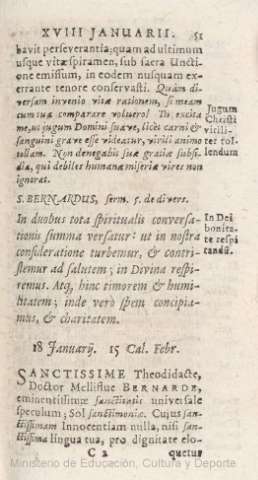 XVIII JANUARII. 51
bavit perseverantia; quam ad ultimum
usque vitæ spiramen, sub sacra Uncti-
one emissum, in eodem nusquam ex-
errante tenore conservasti. Quàm di-
versam invenio vitæ rationem, si meam
cum tua comparare voluero! Tu excita
me, ut jugum Domini suave, licèt carni &
sanguini grave esse videatur, virili animo
tollam. Non denegabis suæ gratiæ subsi-
dia, qui debiles humanæ miseriæ vires non
ignorat.
Jugum
Christi
virili-
ter tol-
lendum
S. BERNARDUS, serm. 5. de divers.
In duobus tota spiritualis conversa-
tionis summa versatur: ut in nostra
consideratione turbemur, & contri-
stemur ad salutem; in Divina respi-
remus. Atq; hinc timorem & humi-
litatem; inde verò spem concipia-
mus, & charitatem.
In Dei
bonita-
te respi
randũ.
18 Januarij. 15 Cal. Febr.
SANCTISSIME Theodidacte,
Doctor Melliflue BERNARDE,
eminentissime sanctitatis universale
speculum; Sol sanctimoniæ. Cujus san-
ctissimam Innocentiam nulla, nisi san-
ctissima lingua tua, pro dignitate elo-
C 2 quetur
Ministerio de Educación, Cultura y Deporte